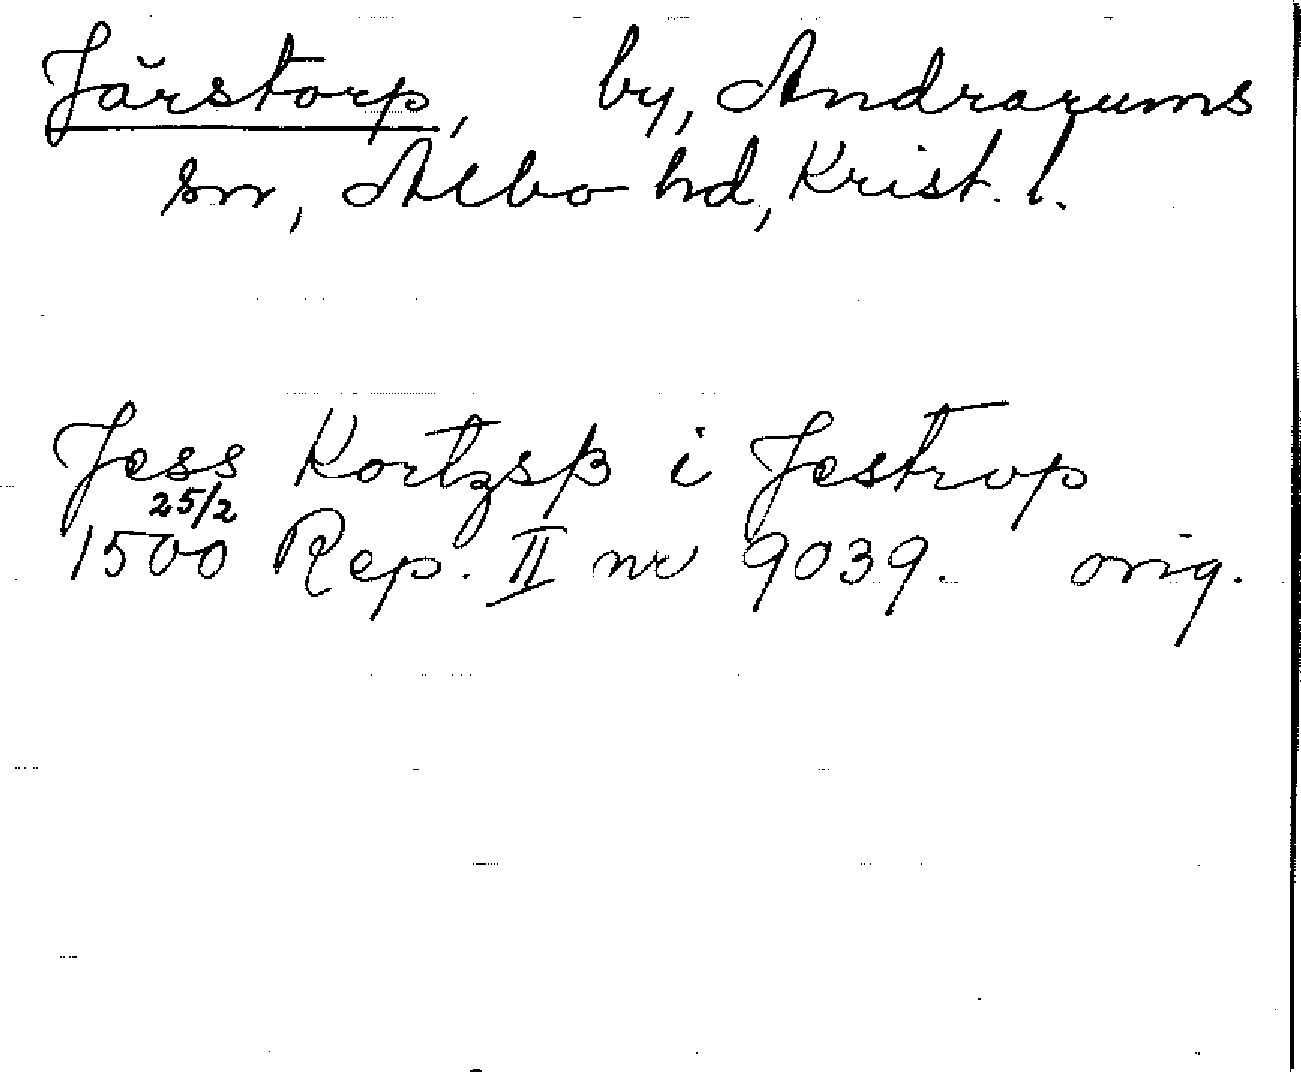 Järstorp, by, Andrarums
sn, Albo hd, Krist. l.
Jess Kortzsß i Jestrop
25/2
1500 Rep. II nr 9039. orig.